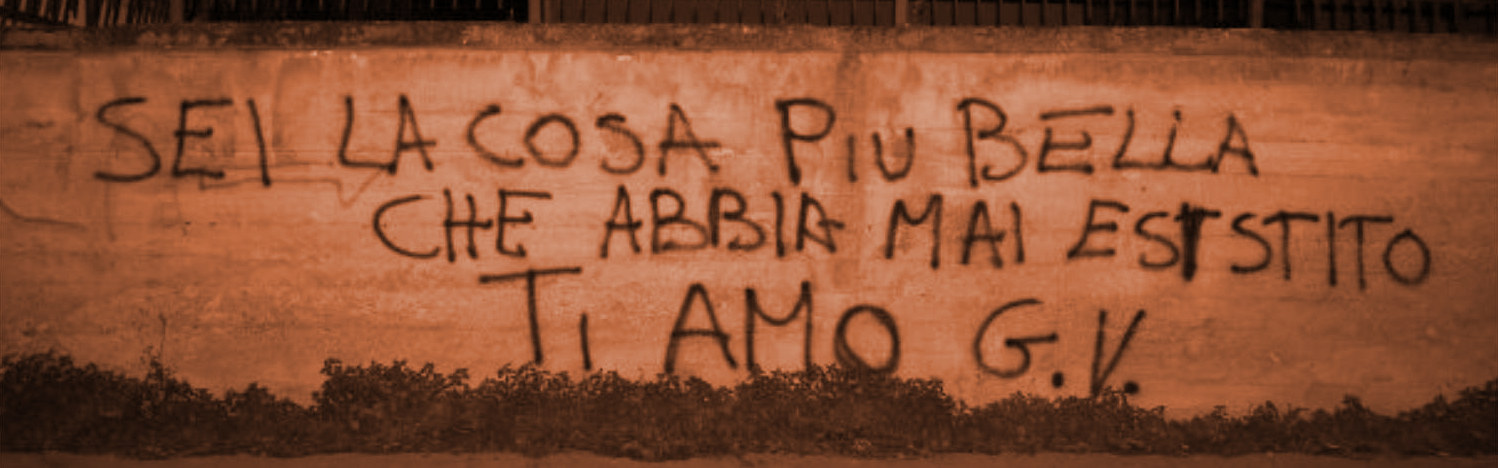 SEI LA COSA PIU BELLA
CHE ABBIA MAI ESISTITO
TI AMO G.V.